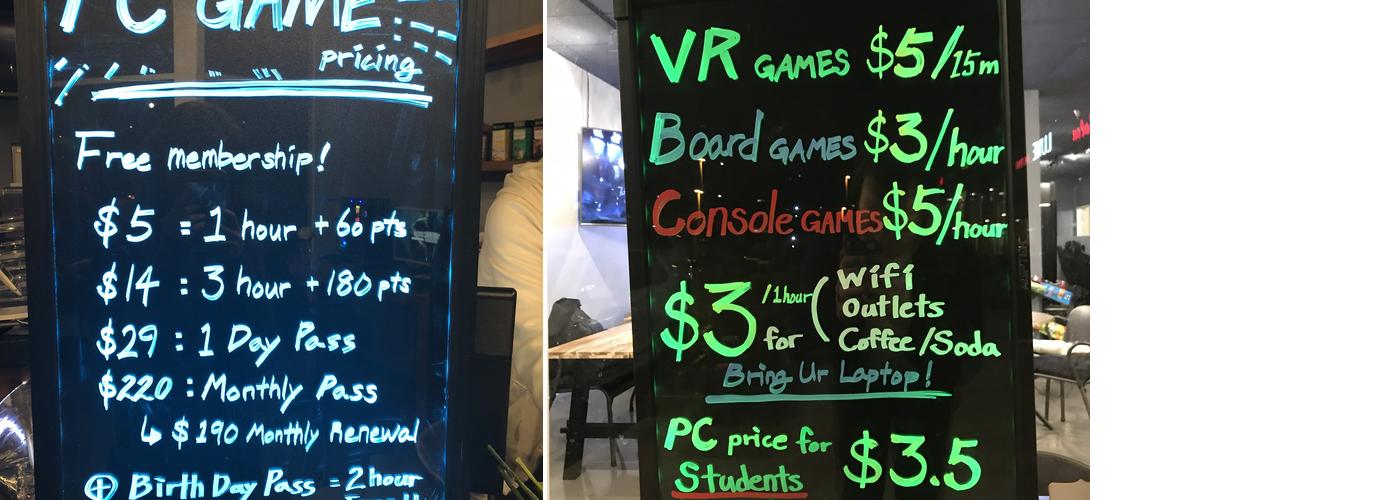 PC GAME
pricing
Free membership!
$5 = 1 hour + 60 pts
$14 : 3 hour + 180 pts
$29 : 1 Day Pass
$220 : Monthly Pass
↳ $190 Monthly Renewal
⊕ Birth Day Pass = 2 hour
VR GAMES $5/15m
Board GAMES $3/hour
Console GAMES $5/hour
$3 /1hour for ( Wifi
Outlets
Coffee/Soda
Bring Ur Laptop!
PC price for
Students $3.5